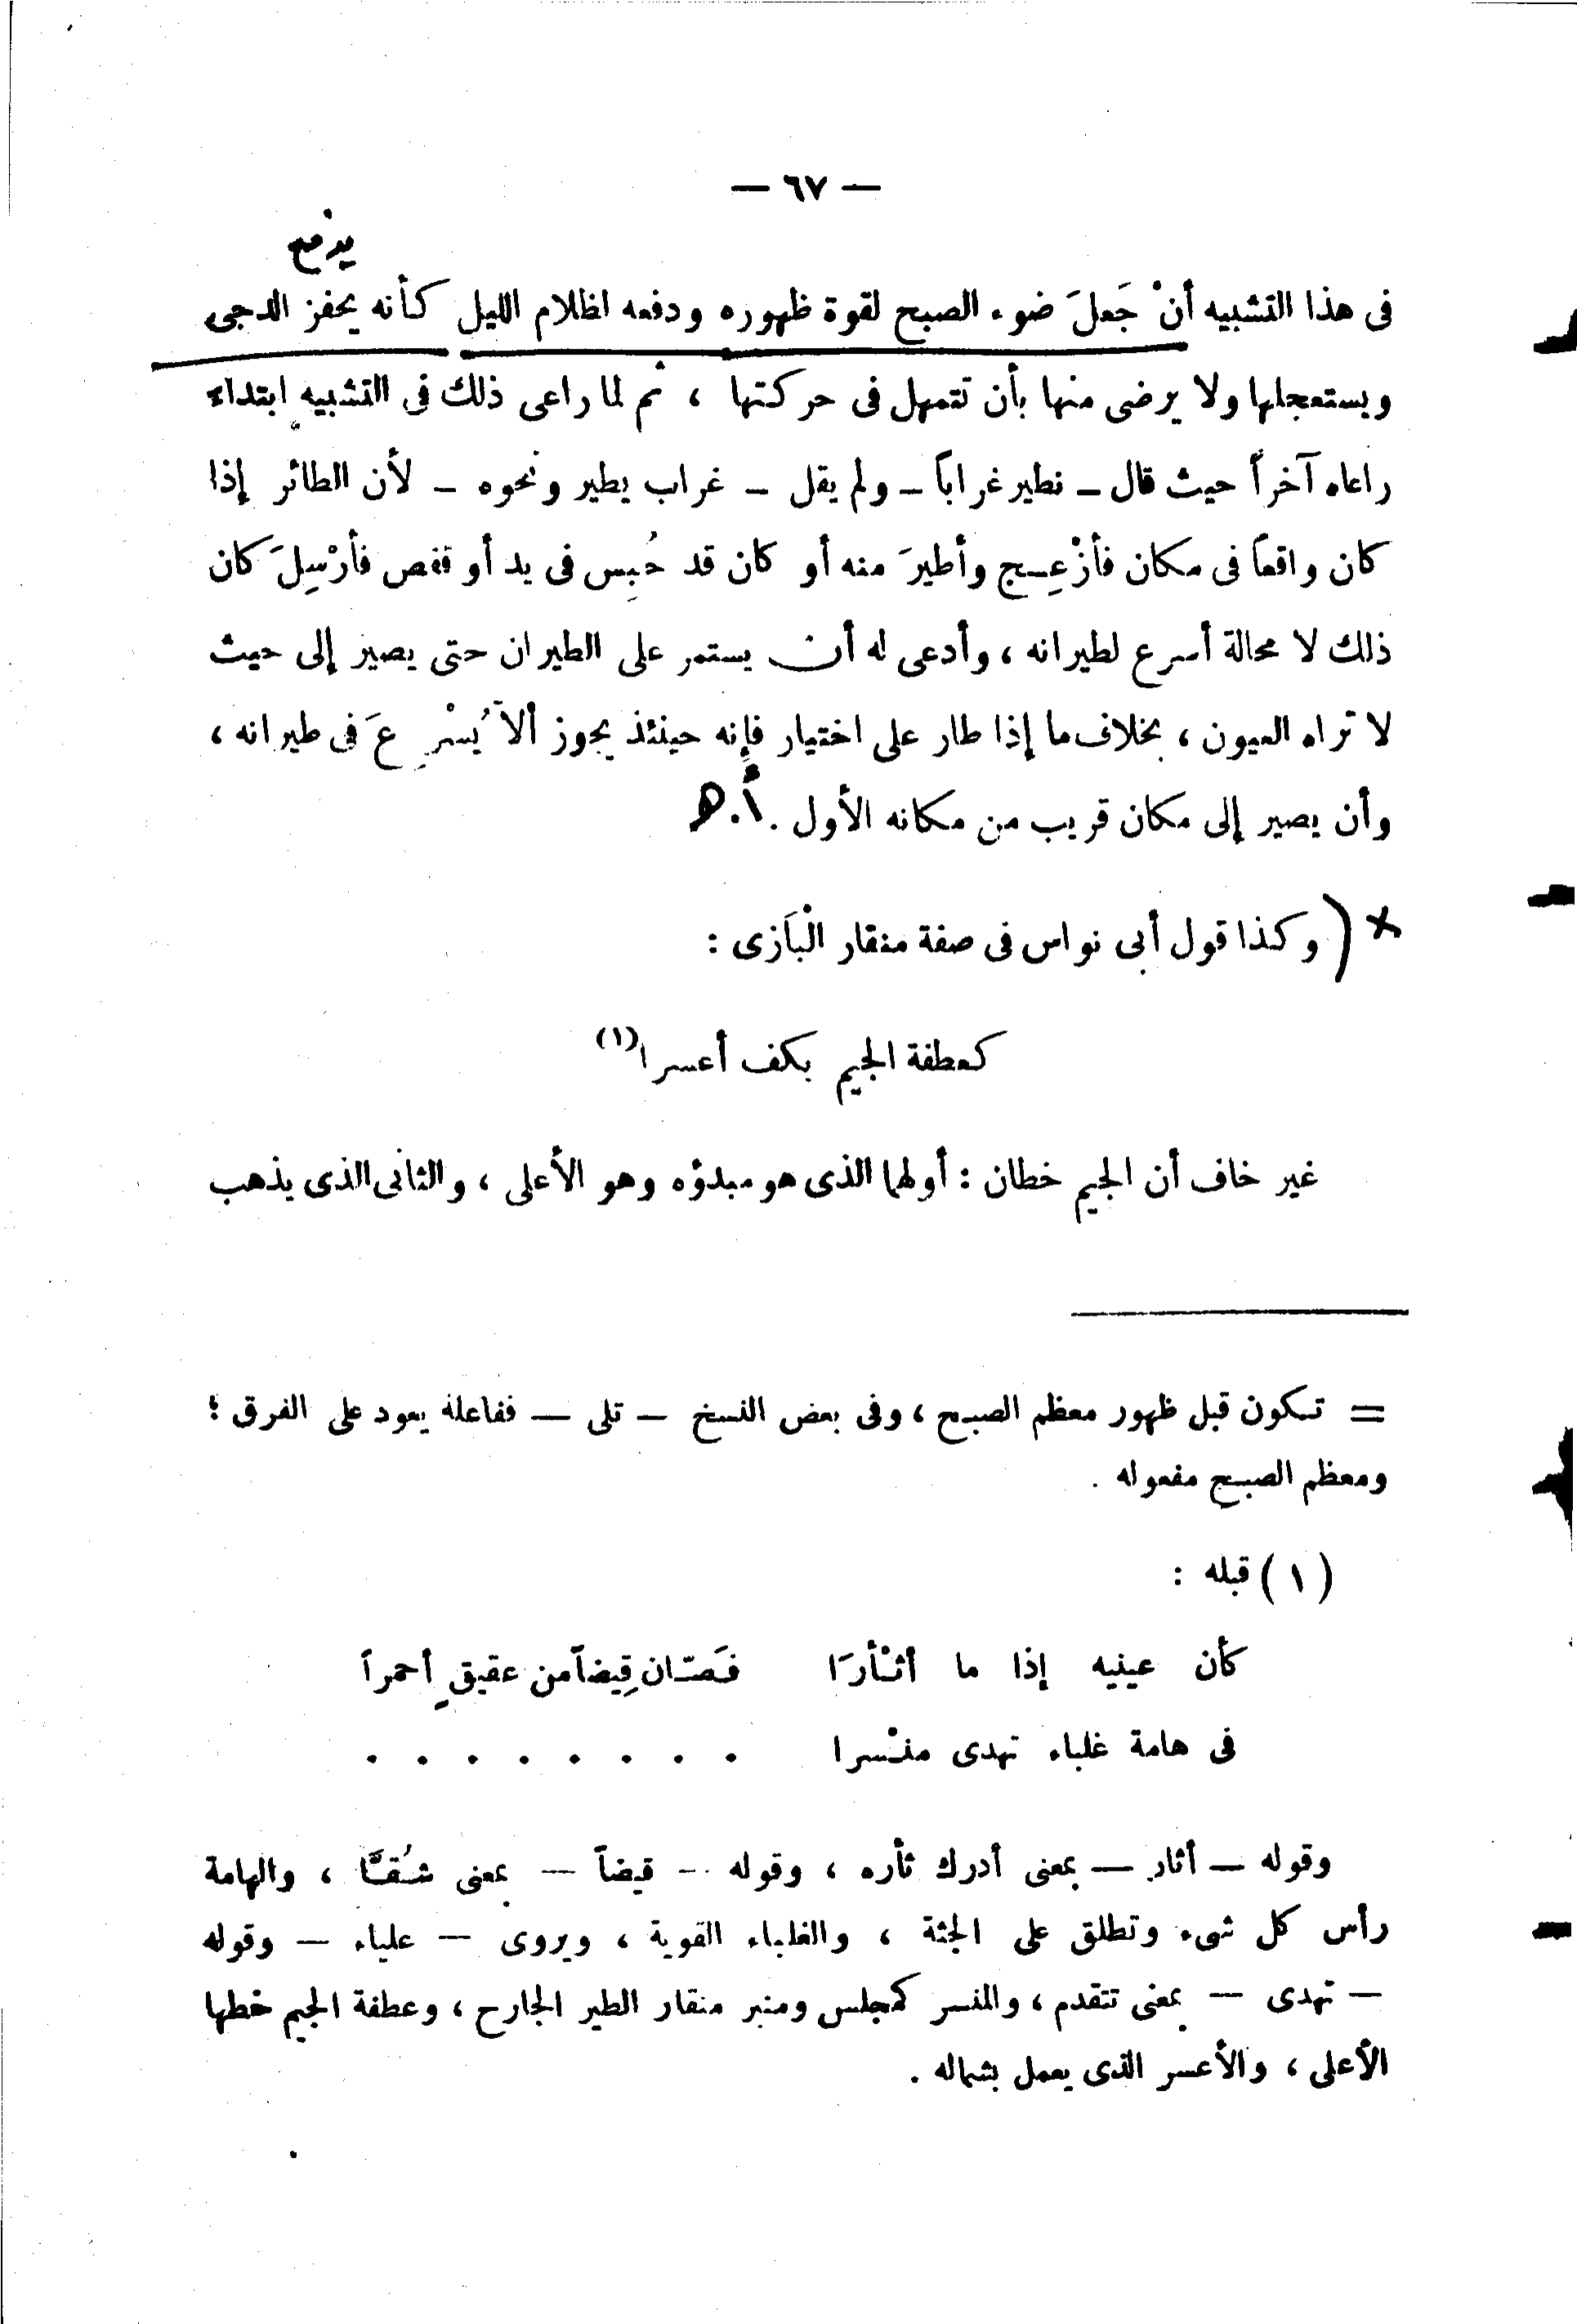 — ٦٧ —
يدفع
فى هذا التشبيه أنْ جَعلَ ضوء الصبح لقوة ظهوره ودفعه لظلام الليل كأنه يحفز الدجى
ويستعجلها ولا يرضى منها بأن تتمهل فى حركتها ، ثم لما راعى ذلك فى التشبيه ابتداء
راعاه آخراً حيث قال – نطير غراباً – ولم يقل – غراب يطير ونحوه – لأن الطائر إذا
كان واقعاً فى مكان فأزْعِج وأطيرَ منه أو كان قد حُبِس فى يد أو قفص فأرْسِلَ كان
ذلك لا محالة أسرع لطيرانه ، وأدعى له أن يستمر على الطيران حتى يصير إلى حيث
لا تراه العيون ، بخلاف ما إذا طار على اختيار فإنه حينئذ يجوز ألاَّ يُسْرِعَ فى طيرانه ،
وأن يصير إلى مكان قريب من مكانه الأول . أ.ه
× ( وكذا قول أبى نواس فى صفة منقار الْبَازى :
كعطفة الجيم بكف أعسرا (١)
غير خاف أن الجيم خطان : أولهما الذى هو مبدؤه وهو الأعلى ، والثانى الذى يذهب
= تكون قبل ظهور معظم الصبح ، وفى بعض النسخ – تلى – ففاعله يعود على الفرق ؛
ومعظم الصبح مفعوله .
( ١ ) قبله :
كأن عينيه إذا ما أثْأرَا فَصَّان قِيضاً من عقيقٍ أحمراً
فى هامة غلباء تهدى منْسرا . . . . . . . .
وقوله – أثار – بمعنى أدرك ثأره ، وقوله – قيضاً – بمعنى شُقَّا ، والهامة
رأس كل شىء وتطلق على الجثة ، والغلباء القوية ، ويروى – علياء – وقوله
– تهدى – بمعنى تتقدم ، والمنسر كمجلس ومنبر منقار الطير الجارح ، وعطفة الجيم خطها
الأعلى ، والأعسر الذى يعمل بشماله .